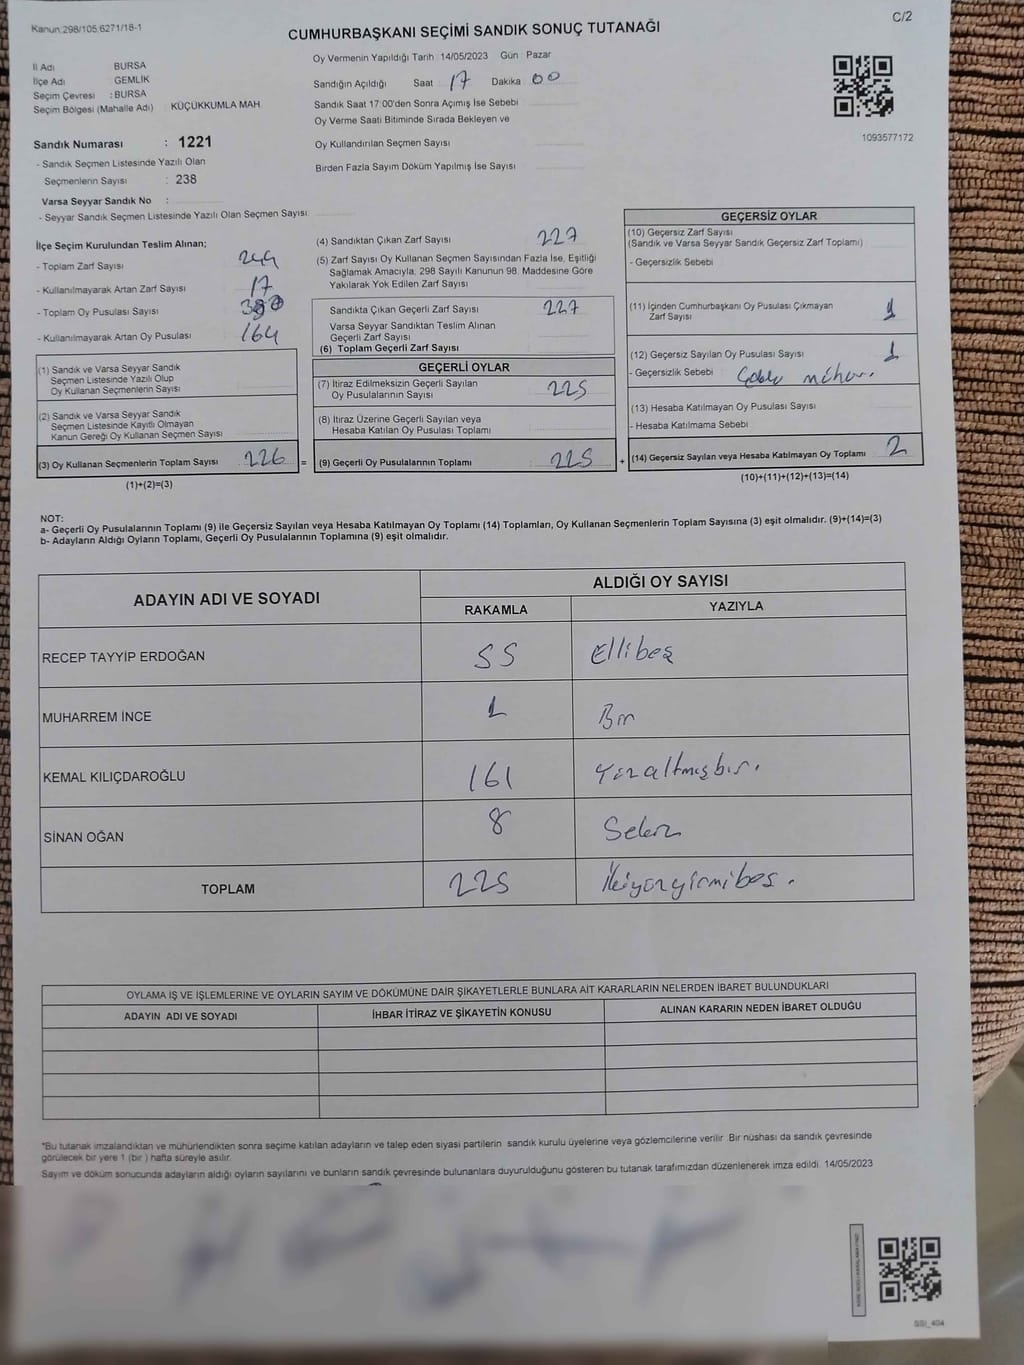 Kanun:298/105,6271/18-1
C/2
CUMHURBAŞKANI SEÇİMİ SANDIK SONUÇ TUTANAĞI
Oy Vermenin Yapıldığı Tarih 14/05/2023 Gün Pazar
İl Adı BURSA
İlçe Adı GEMLİK
Seçim Çevresi : BURSA
Seçim Bölgesi (Mahalle Adı) KÜÇÜKKUMLA MAH
Sandığın Açıldığı Saat 17 Dakika 00
Sandık Saat 17:00'den Sonra Açımış İse Sebebi
Oy Verme Saati Bitiminde Sırada Bekleyen ve
Oy Kullandırılan Seçmen Sayısı
Birden Fazla Sayım Döküm Yapılmış İse Sayısı
1093577172
Sandık Numarası : 1221
- Sandık Seçmen Listesinde Yazılı Olan
Seçmenlerin Sayısı : 238
Varsa Seyyar Sandık No :
- Seyyar Sandık Seçmen Listesinde Yazılı Olan Seçmen Sayısı:
İlçe Seçim Kurulundan Teslim Alınan;
- Toplam Zarf Sayısı 244
- Kullanılmayarak Artan Zarf Sayısı 17
- Toplam Oy Pusulası Sayısı
- Kullanılmayarak Artan Oy Pusulası 164
(1) Sandık ve Varsa Seyyar Sandık
Seçmen Listesinde Yazılı Olup
Oy Kullanan Seçmenlerin Sayısı
(2) Sandık ve Varsa Seyyar Sandık
Seçmen Listesinde Kayıtlı Olmayan
Kanun Gereği Oy Kullanan Seçmen Sayısı
(3) Oy Kullanan Seçmenlerin Toplam Sayısı 226 =
(1)+(2)=(3)
(4) Sandıktan Çıkan Zarf Sayısı 227
(5) Zarf Sayısı Oy Kullanan Seçmen Sayısından Fazla İse, Eşitliği
Sağlamak Amacıyla, 298 Sayılı Kanunun 98. Maddesine Göre
Yakılarak Yok Edilen Zarf Sayısı
Sandıkta Çıkan Geçerli Zarf Sayısı 227
Varsa Seyyar Sandıktan Teslim Alınan
Geçerli Zarf Sayısı
(6) Toplam Geçerli Zarf Sayısı
GEÇERLİ OYLAR
(7) İtiraz Edilmeksizin Geçerli Sayılan
Oy Pusulalarının Sayısı 225
(8) İtiraz Üzerine Geçerli Sayılan veya
Hesaba Katılan Oy Pusulası Toplamı
(9) Geçerli Oy Pusulalarının Toplamı : 225 +
GEÇERSİZ OYLAR
(10) Geçersiz Zarf Sayısı
(Sandık ve Varsa Seyyar Sandık Geçersiz Zarf Toplamı)
- Geçersizlik Sebebi
(11) İçinden Cumhurbaşkanı Oy Pusulası Çıkmayan
Zarf Sayısı 1
(12) Geçersiz Sayılan Oy Pusulası Sayısı 1
- Geçersizlik Sebebi mühür.
(13) Hesaba Katılmayan Oy Pusulası Sayısı
- Hesaba Katılmama Sebebi
(14) Geçersiz Sayılan veya Hesaba Katılmayan Oy Toplamı 2
(10)+(11)+(12)+(13)=(14)
NOT:
a- Geçerli Oy Pusulalarının Toplamı (9) ile Geçersiz Sayılan veya Hesaba Katılmayan Oy Toplamı (14) Toplamları, Oy Kullanan Seçmenlerin Toplam Sayısına (3) eşit olmalıdır. (9)+(14)=(3)
b- Adayların Aldığı Oyların Toplamı, Geçerli Oy Pusulalarının Toplamına (9) eşit olmalıdır.
ADAYIN ADI VE SOYADI
ALDIĞI OY SAYISI
RAKAMLA YAZIYLA
RECEP TAYYİP ERDOĞAN 55 Ellibeş
MUHARREM İNCE 1 Bir
KEMAL KILIÇDAROĞLU 161 Yüzaltmışbir.
SİNAN OĞAN 8 Sekiz
TOPLAM 225 İkiyüzyirmibeş.
OYLAMA İŞ VE İŞLEMLERİNE VE OYLARIN SAYIM VE DÖKÜMÜNE DAİR ŞİKAYETLERLE BUNLARA AİT KARARLARIN NELERDEN İBARET BULUNDUKLARI
ADAYIN ADI VE SOYADI İHBAR İTİRAZ VE ŞİKAYETİN KONUSU ALINAN KARARIN NEDEN İBARET OLDUĞU
*Bu tutanak imzalandıktan ve mühürlendikten sonra seçime katılan adayların ve talep eden siyasi partilerin sandık kurulu üyelerine veya gözlemcilerine verilir Bir nüshası da sandık çevresinde
görülecek bir yere 1 (bir ) hafta süreyle asılır.
Sayım ve döküm sonucunda adayların aldığı oyların sayılarını ve bunların sandık çevresinde bulunanlara duyurulduğunu gösteren bu tutanak tarafımızdan düzenlenerek imza edildi. 14/05/2023
GSI_404